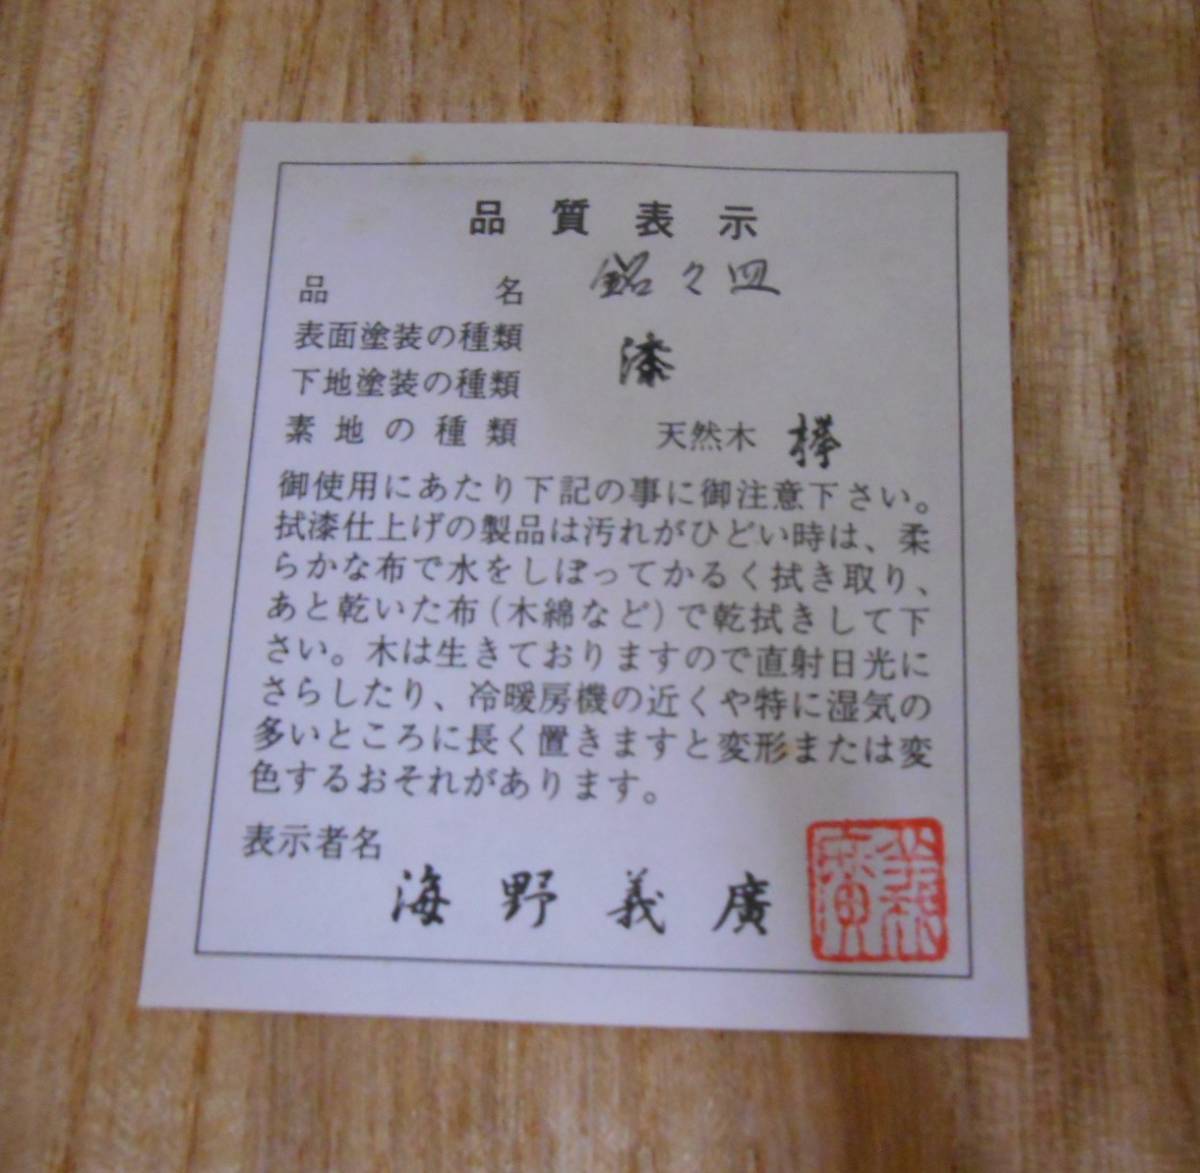 品質表示
品名 銘々皿
表面塗装の種類
漆
下地塗装の種類
素地の種類 天然木 欅
御使用にあたり下記の事に御注意下さい。
拭漆仕上げの製品は汚れがひどい時は、柔
らかな布で水をしぼってかるく拭き取り、
あと乾いた布(木綿など)で乾拭きして下
さい。木は生きておりますので直射日光に
さらしたり、冷暖房機の近くや特に湿気の
多いところに長く置きますと変形または変
色するおそれがあります。
表示者名
海野義廣
義廣